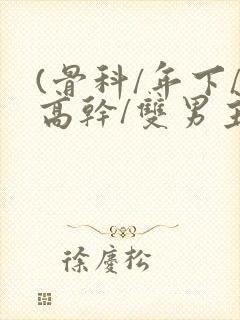 (骨科/年下/
高幹/雙男主
徐慶松